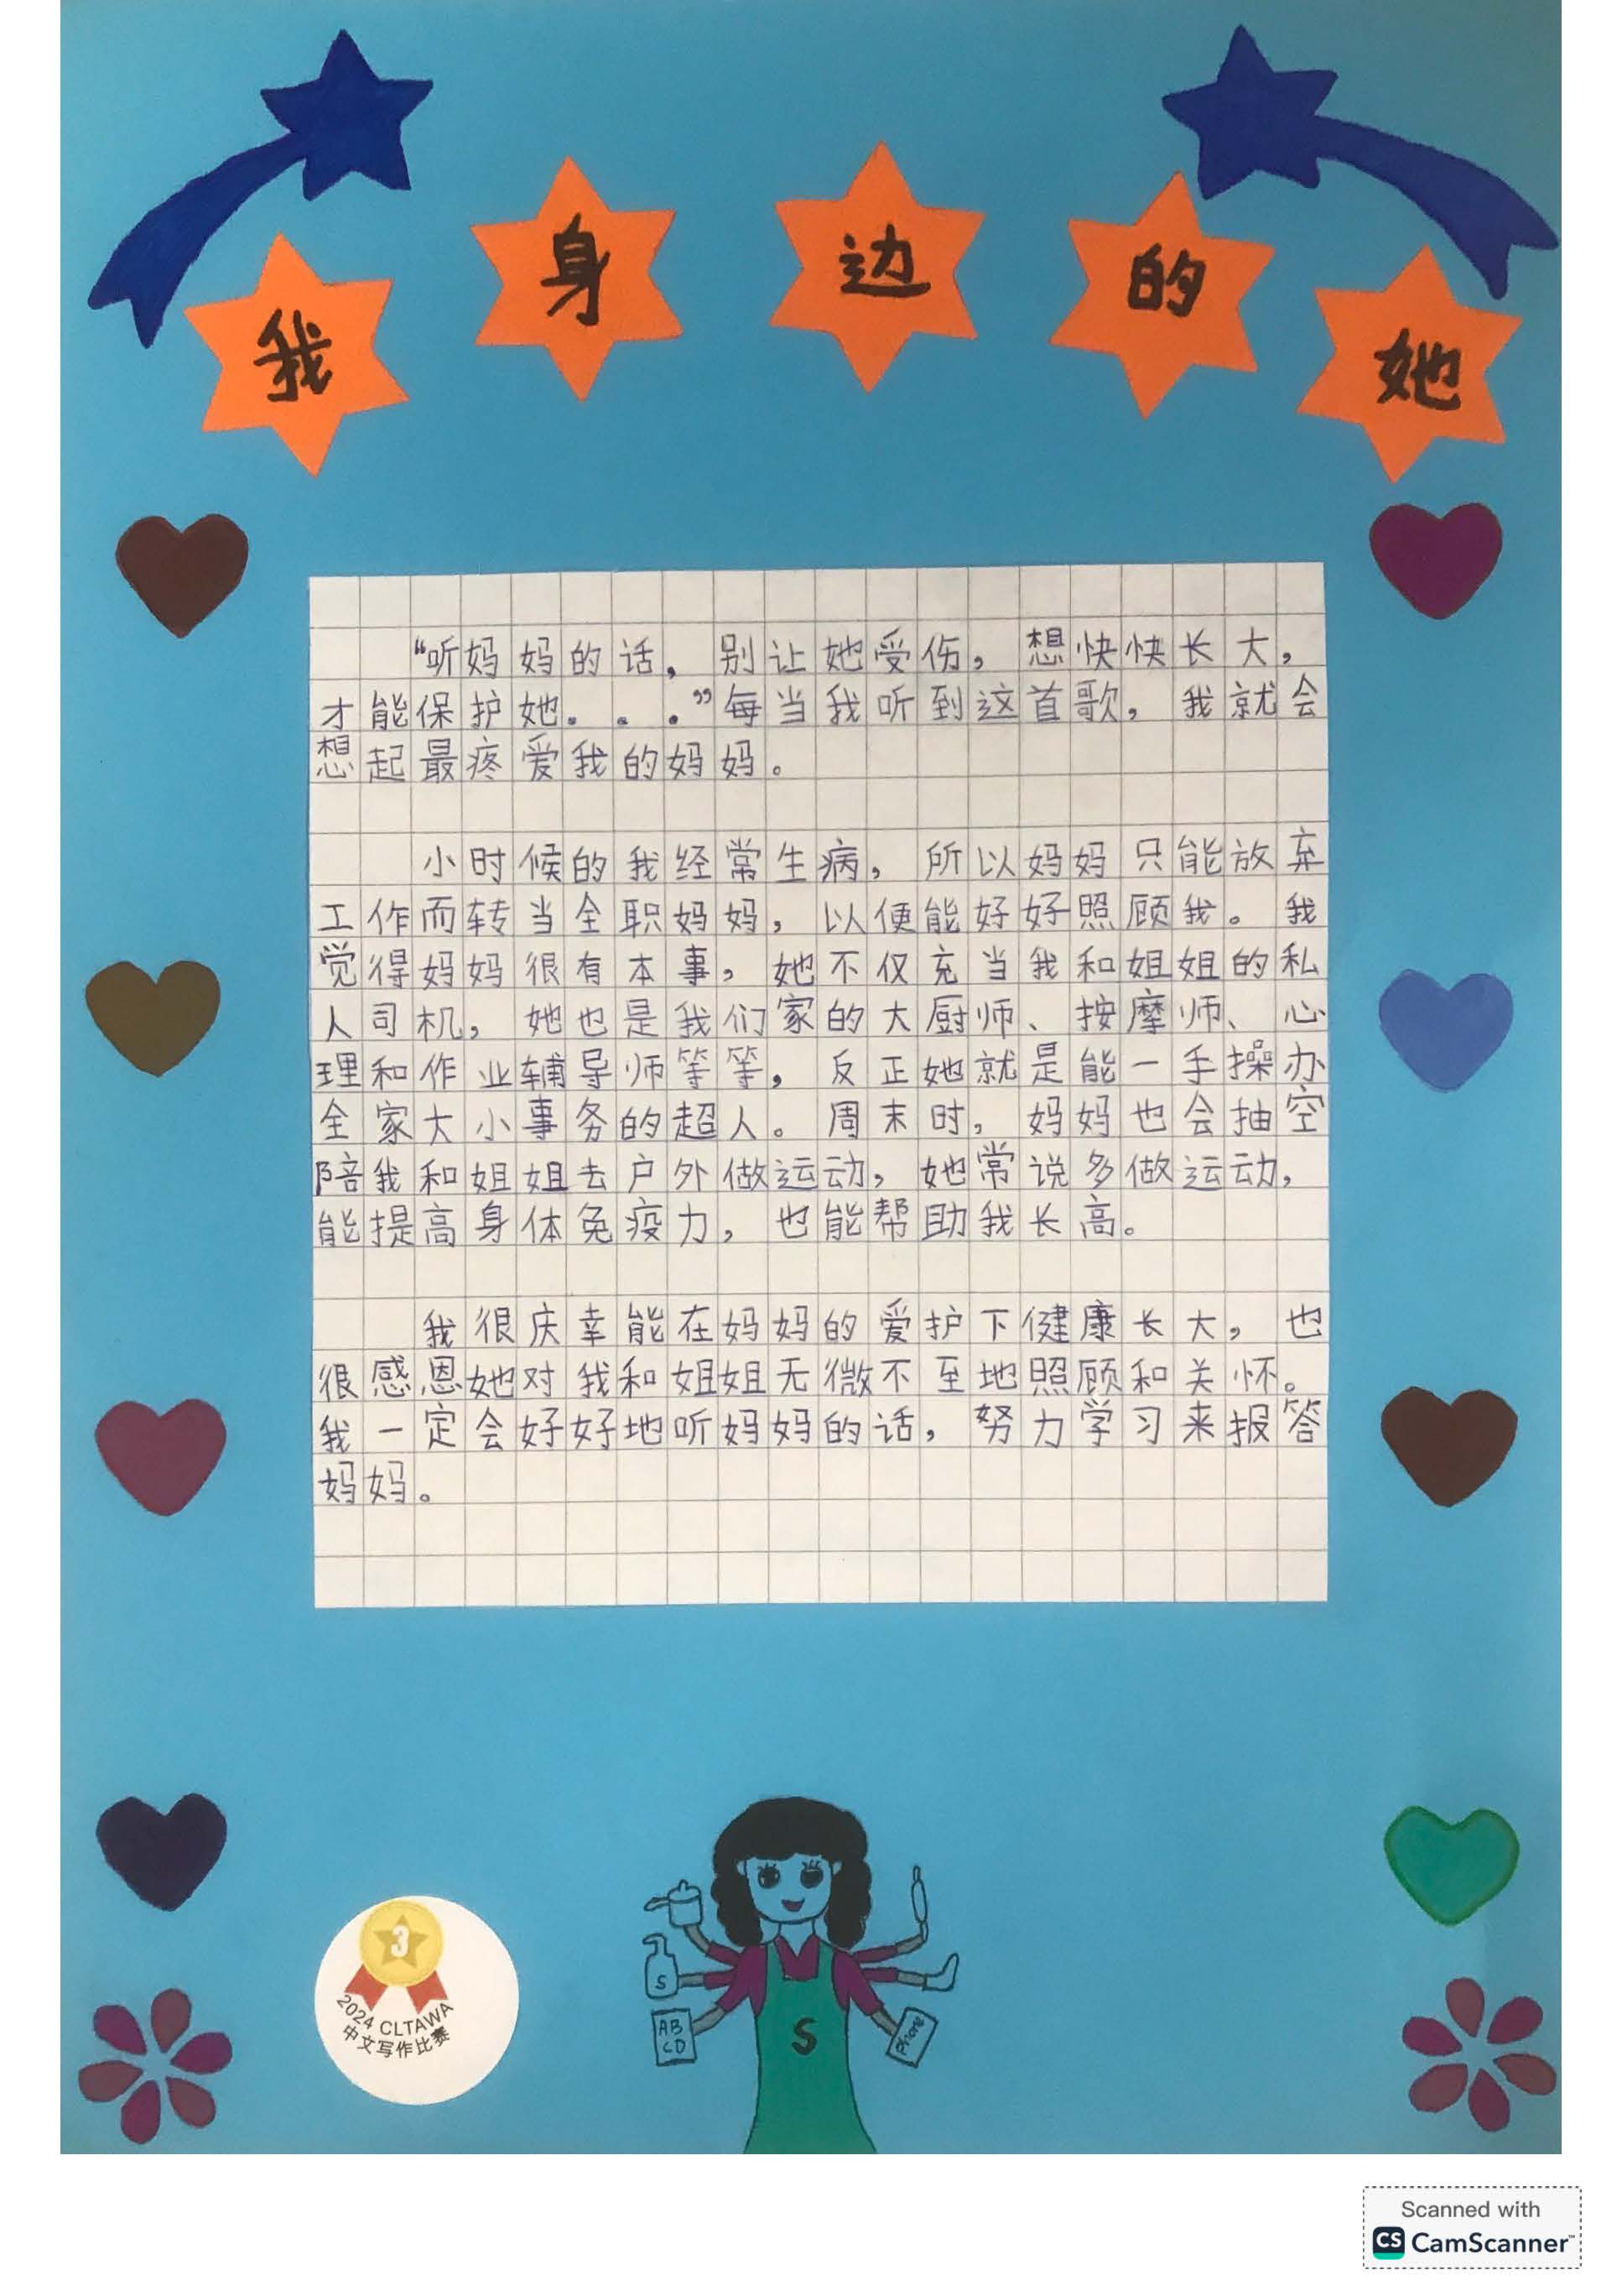 我身边的她
“听妈妈的话，别让她受伤，想快快长大，
才能保护她。。。”每当我听到这首歌，我就会
想起最疼爱我的妈妈。
小时候的我经常生病，所以妈妈只能放弃
工作而转当全职妈妈，以便能好好照顾我。我
觉得妈妈很有本事，她不仅充当我和姐姐的私
人司机，她也是我们家的大厨师、按摩师、心
理和作业辅导师等等，反正她就是能一手操办
全家大小事务的超人。周末时，妈妈也会抽空
陪我和姐姐去户外做运动，她常说多做运动，
能提高身体免疫力，也能帮助我长高。
我很庆幸能在妈妈的爱护下健康长大，也
很感恩她对我和姐姐无微不至地照顾和关怀。
我一定会好好地听妈妈的话，努力学习来报答
妈妈。
3
2024 CLTAWA
中文写作比赛
S
AB
CD
S
phone
Scanned with
CS CamScanner